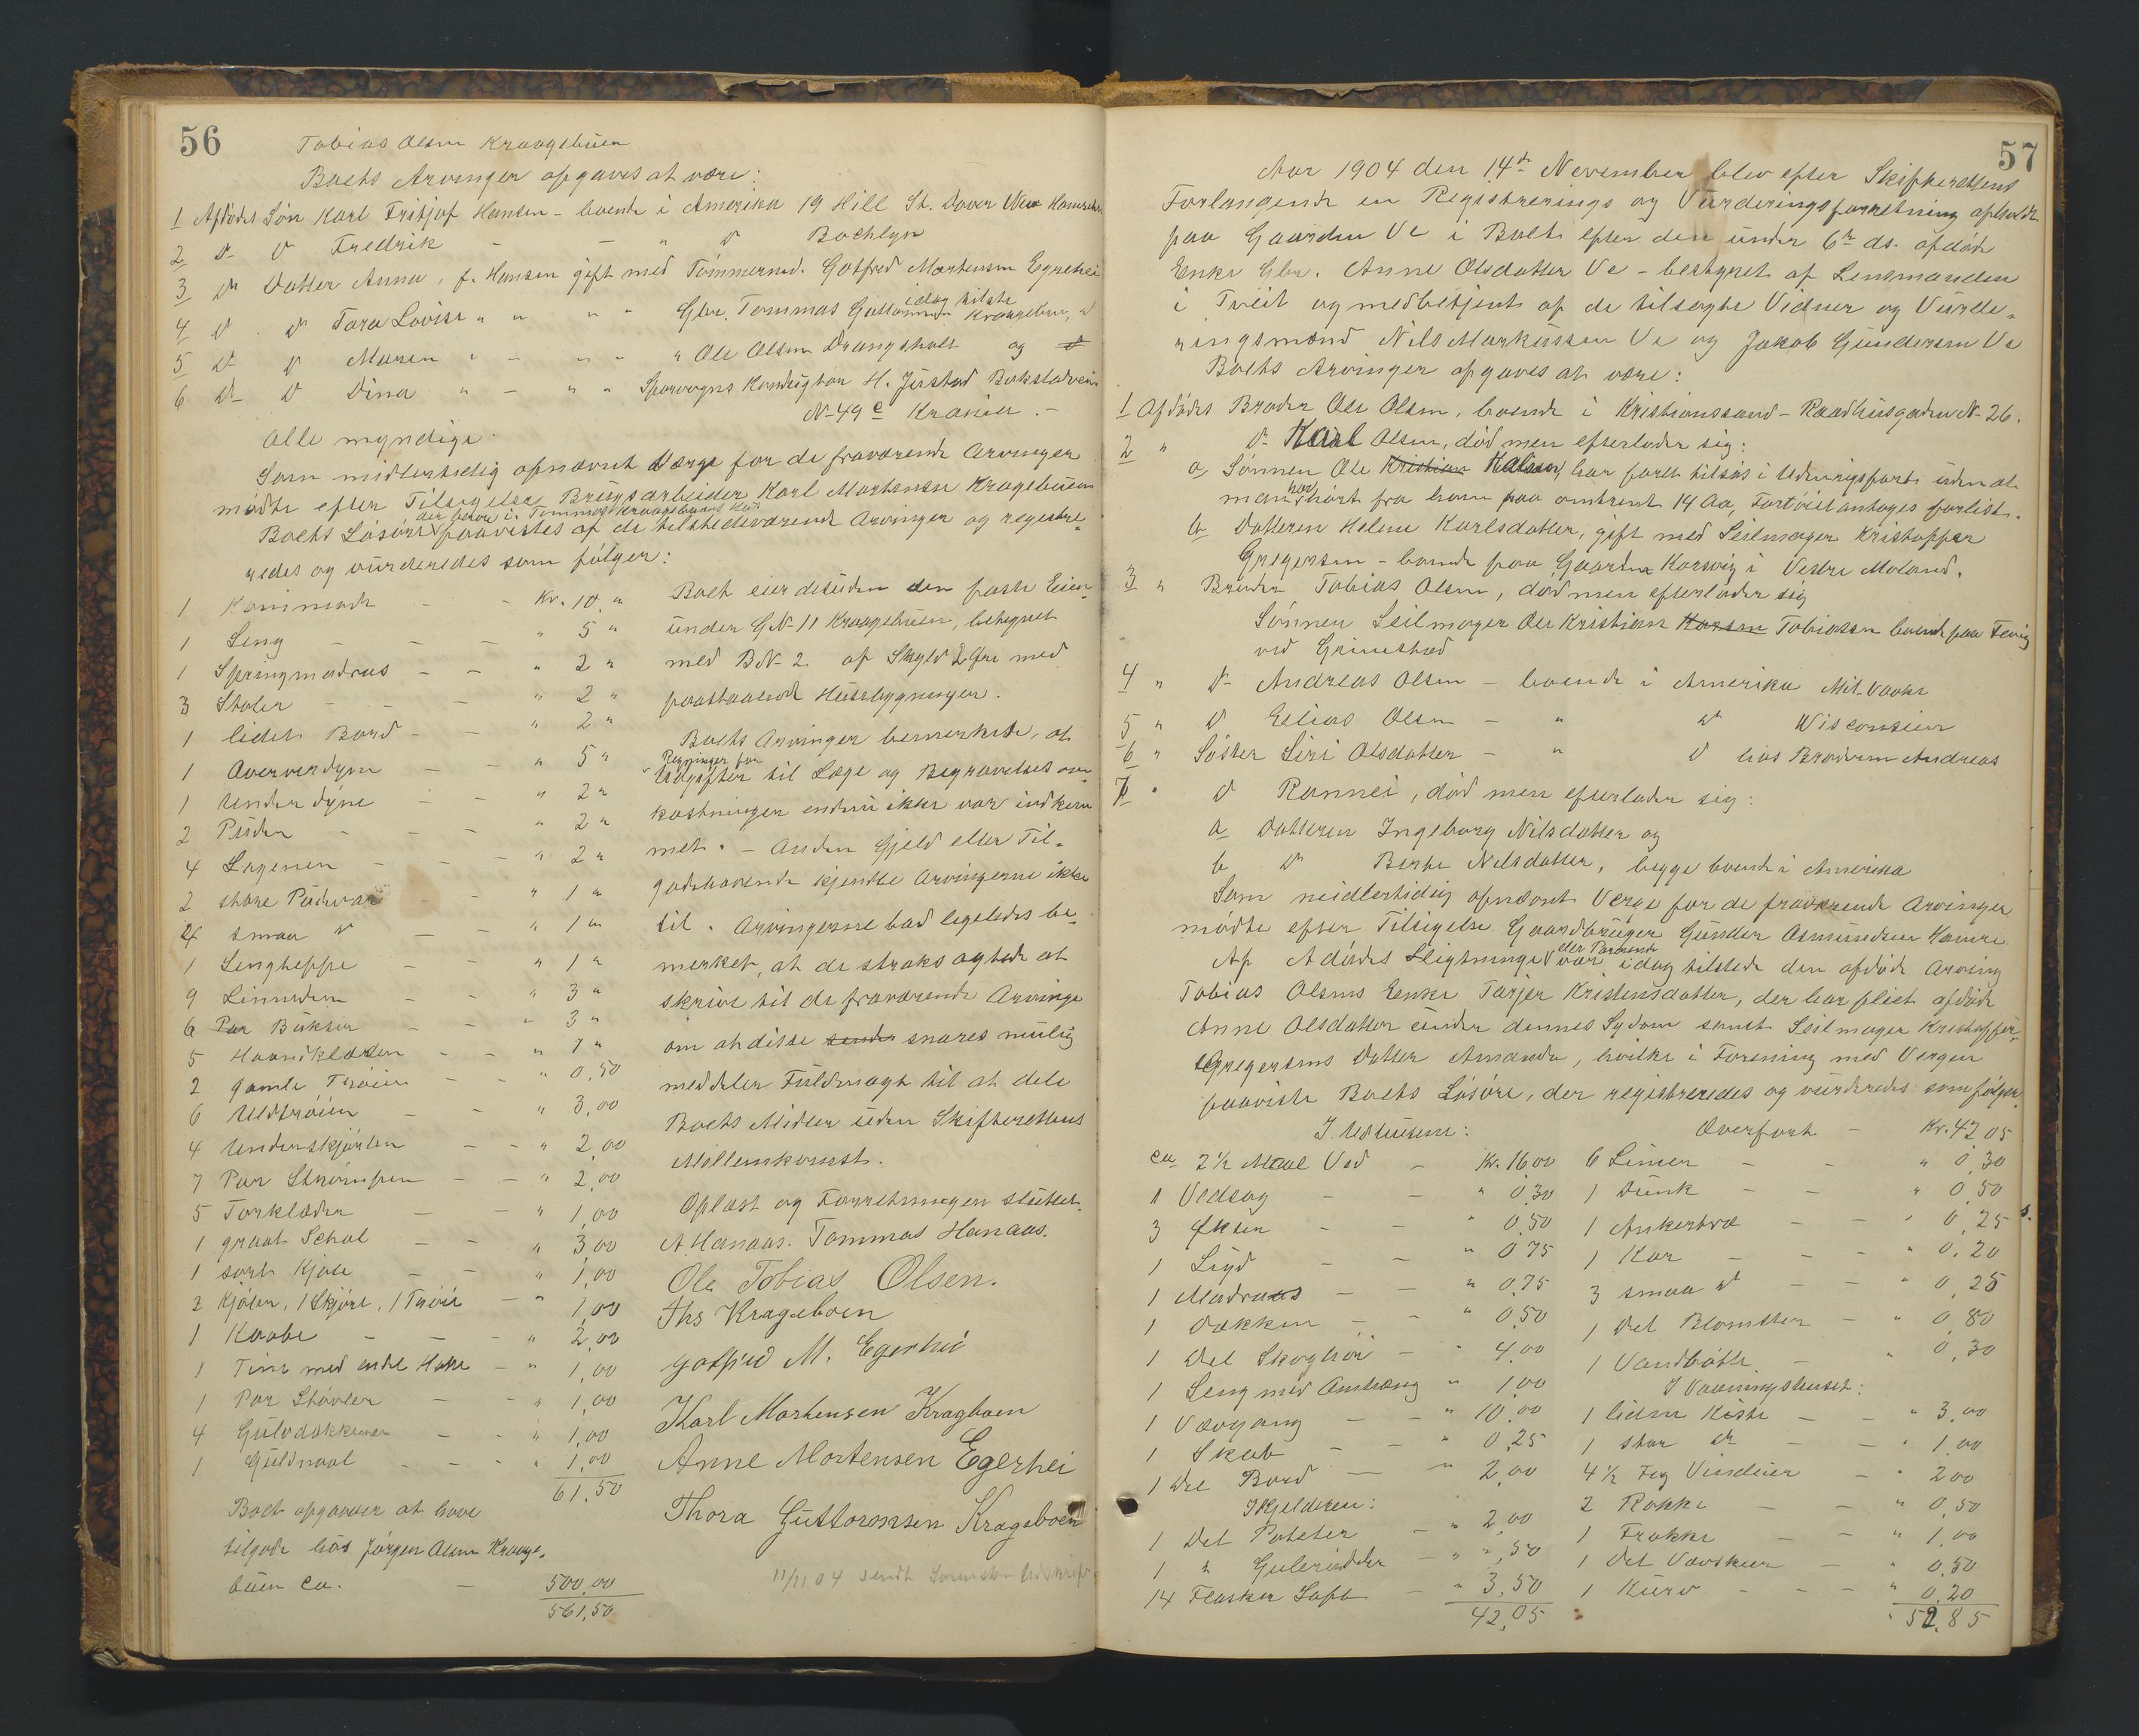 56
Tobias Olsen Kraagebuen
Boets Arvinger opgaves at være:
1 Afdødes Søn Karl Fritjof Hansen - boende i Amerika 19 Hill St. Dover New
2 do do Fredrik - - " do Bochlyn
3 do Datter Anna, f. Hansen gift med Tømmermd. Gotfred Mortensen Egerhei
4 do do Tora Lovise " " " " Gbr. Tommas Guttormsen Kraagebuen, idag tilstede
5 do do Maren " - " " " Ole Olsen Drangsholt og
6 do do Dina " - " " Sporvogns Konduktør H. Justad
No 49 e Krania. -
Alle myndige.
Som midlertidig opnævnt Værge for de fraværende Arvinger
mødte efter Tilsigelse Brugsarbeider Karl Mortensen Kragebuen
Boets Løsøre der beror i Tommas Kraagebuens Hus paavistes af de tilstedeværende Arvinger og registre-
redes og vurderedes som følger:
1 Kommode - - Kr. 10 "
1 Seng - - - " 5 "
1 Springmadras - - " 2 "
3 Stoler - - - " 2 "
1 lidet Bord - - " 2 "
1 Overdyne - - " 5 "
1 Underdyne - - " 2 "
2 Puder - - - " 2 "
4 Lagener - - - " 2 "
2 store Pudevar - - " 1 "
4 smaa do - - " 1 "
1 Sengteppe - - " 1 "
9 Linneder - - " 3 "
6 Par Bukser - - " 3 "
5 Haandklæder - - " 1 "
2 gamle Trøier - - " 0,50
6 Uldtrøier - - " 3,00
4 Underskjørter - - " 2,00
7 Par Strømper - - " 2,00
5 Forklæder - - " 1,00
1 graat Schal - - " 3,00
1 sort Kjole - - " 1,00
2 Kjoler, 1 Skjørt, 1 Trøie - " 1,00
1 Kaabe - - - " 2,00
1 Tine med endel - " 1,00
1 Par Støvler - - " 1,00
4 Gulvdækkener - - " 1,00
1 Guldnaal - - - " 1,00
61,50
Boet opgaves at have
tilgode hos Jørgen Olsen Kraage-
buen ca. - 500,00
561,50
Boet eier desuden den faste Eien-
under G.No 11 Kraagebuen, betegnet
med B.No 2 af Skyld 2 Øre med
paastaaende Husebygninger.
Boets Arvinger bemerkede, at
Regninger for Udgifter til Læge og Begravelses om-
kostninger endnu ikke var indkom
met. - Anden Gjeld eller Til-
godehavende kjendte Arvingerne ikke
til. Arvingerne bad ligeledes be-
merket, at de straks agtede at
skrive til de fraværende Arvinge
om at disse sender snarest mulig
meddeler Fuldmagt til at dele
Boets Midler uden Skifterettens
Mellemkomst.
Oplæst og Forretningen sluttet.
A. Hanaas. Tommas Hanaas.
Ole Tobias Olsen.
Ths Krageboen
Gotfred M. Egerhei
Karl Mortensen Kragboen
Anne Mortensen Egerhei
Thora Guttormsen Krageboen
11/11 04 sendt Sorenskr. Udskrift
57
Aar 1904 den 14de November blev efter Skifterettens
Forlangende en Registrerings og Vurderingsforretning afholdt
paa Gaarden Ve i Boet efter den under 6te ds. afdøde
Enke Gbr. Anne Olsdatter Ve - bestyret af Lensmanden
i Tveit og medbetjent af de tilsagte Vidner og Vurde-
ringsmænd Nils Markussen Ve og Jakob Gundersen Ve
Boets Arvinger opgaves at være:
1 Afdødes Broder Ole Olsen, boende i Kristianssand - Raadhusgaden No 26.
2 " do Karl Olsen, død men efterlader sig:
a Sønnen Ole Kristian Kalsen, har faret tilsøs i Udenrigsfart uden at
man har hørt fra ham paa omtrent 14 Aa, Fartøiet antages forlist.
b Datteren Helene Karlsdatter, gift med Seilmager Kristoffer
Gregersen - boende paa Gaarden Korsvig i Vestre Moland.
3 " Broder Tobias Olsen, død men efterlader sig
Sønnen Seilmager Ole Kristian Karsen Tobiassen boende paa Fevig
ved Grimstad
4 " do Andreas Olsen - boende i Amerika Mil-Vaake
5 " do Elias Olsen - " do Wisconsien
6 " Søster Siri Olsdatter - " do hos Broderen Andreas
7 " do Rannei, død men efterlader sig:
a Datteren Ingeborg Nilsdatter og
b do Berte Nilsdatter, begge boende i Amerika
Som midlertidig opnævnt Verge for de fraværende Arvinger
mødte efter Tilsigelse Gaardbruger Gunder Asmundsen Hamre
Af Afdødes Slegtninge eller Parørende var idag tilstede den afdøde Arving
Tobias Olsens Enke Tarjer Kristensdatter, der har pleiet afdøde
Anne Olsdatter under dennes Sygdom samt Seilmager Kristoffer
Gregersens Datter Amanda, hvilke i Forening med Vergen
paaviste Boets Løsøre, der registreredes og vurderedes som følger.
I Udhusene:
ca 2 1/2 Maal Ved - Kr. 16 00
1 Vedsag - - " 0 30
3 Økser - - " 0,50
1 Ligd - - " 0 75
1 Madras - - " 0,75
1 Dækken - - " 0,50
1 Del Skoghøi - " 4,00
1 Seng med Omhæng " 1,00
1 Vævgang - - " 10,00
1 Skab - - " 0,25
1 Del Bord - " 2,00
I Kjelderen:
1 Del Poteter - " 2,00
1 " Gulerødder - " ",50
14 Flasker Saft - " 3,50
42,05
Overført - Kr. 42 05
6 Limer - - " 0,30
1 Dunk - - " 0,50
1 Ankertræ - - " 0,25
1 Kar - - - " 0,20
3 smaa do - - " 0,25
1 Del Blomster - " 0,80
1 Vandbøtte - " 0,30
I Vaaningshuset:
1 liden Kiste - - " 3,00
1 stor do - - " 1,00
4 1/2 Fag Vinduer - " 2 00
2 Rokke - - " 0,50
1 Frakke - - " 1,00
1 Del Vævskeer - " 0,50
1 Kurv - - - " 0,20
" 52,85